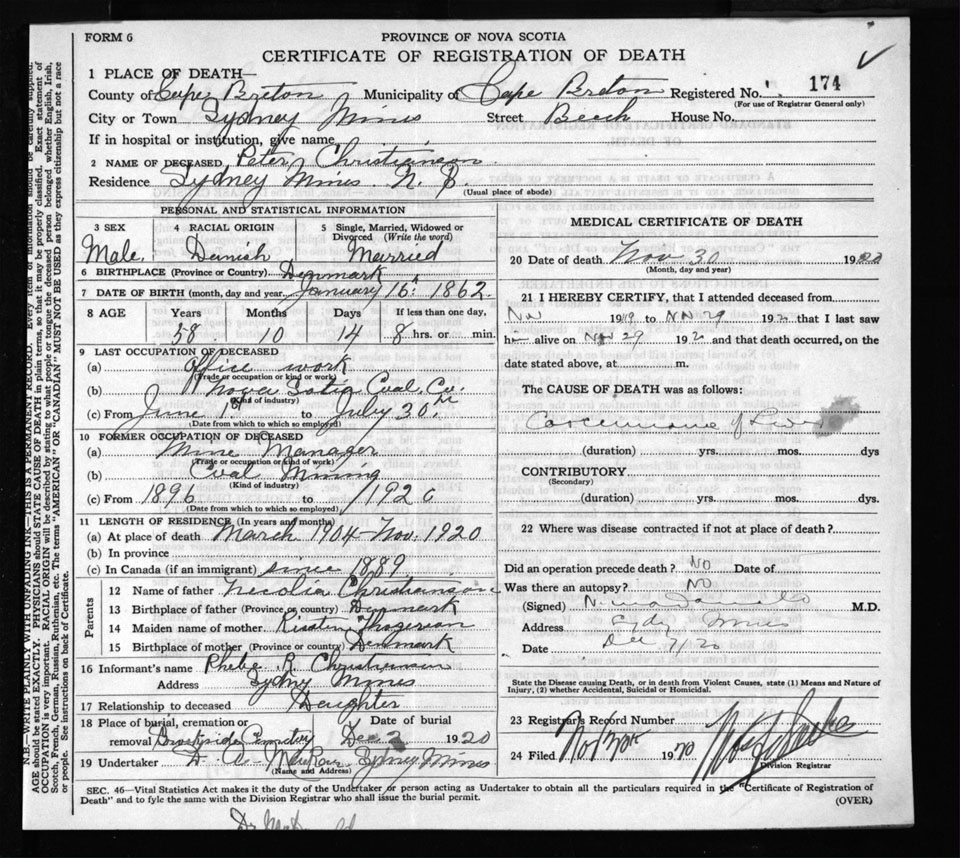 FORM 6
PROVINCE OF NOVA SCOTIA
CERTIFICATE OF REGISTRATION OF DEATH
1 PLACE OF DEATH—
County of Cape Breton Municipality of Cape Breton Registered No. 174
(For use of Registrar General only)
City or Town Sydney Mines Street Beech House No.
If in hospital or institution, give name
2 NAME OF DECEASED Peter Christianson
Residence Sydney Mines N. S.
(Usual place of abode)
PERSONAL AND STATISTICAL INFORMATION
3 SEX 4 RACIAL ORIGIN 5 Single, Married, Widowed or Divorced (Write the word)
Male. Danish Married
6 BIRTHPLACE (Province or Country) Denmark
7 DATE OF BIRTH (month, day and year) January 16. 1862.
8 AGE Years Months Days If less than one day,
58 10 14 8 hrs. or min.
9 LAST OCCUPATION OF DECEASED
(a) Office work
(Trade or occupation or kind or work)
(b) Nova Sotia Coal. Co.
(Kind of industry)
(c) From June 1st to July 30.
(Date from which to which so employed)
10 FORMER OCCUPATION OF DECEASED
(a) Mine Manager
(Trade or occupation or kind of work)
(b) Coal Mining
(Kind of industry)
(c) From 1896 to 1920
(Date from which to which so employed)
11 LENGTH OF RESIDENCE (In years and months)
(a) At place of death March 1904 Nov. 1920
(b) In province
(c) In Canada (if an immigrant) since 1889
Parents
12 Name of father Christianson
13 Birthplace of father (Province or country) Denmark
14 Maiden name of mother
15 Birthplace of mother (Province or country) Denmark
16 Informant's name Phebe R. Christianson
Address Sydney Mines
17 Relationship to deceased Daughter
18 Place of burial, cremation or removal Brookside Cemetery Date of burial Dec 2 1920
19 Undertaker D. A. Sydney Mines
(Name and Address)
MEDICAL CERTIFICATE OF DEATH
20 Date of death Nov 30 1920
(Month, day and year)
21 I HEREBY CERTIFY, that I attended deceased from
Nov 1919 to Nov 29 1920 that I last saw
him alive on Nov 29 192 and that death occurred, on the
date stated above, at m.
The CAUSE OF DEATH was as follows:
Carcinoma of Liver
(duration) yrs. mos. dys
CONTRIBUTORY
(Secondary)
(duration) yrs. mos. dys.
22 Where was disease contracted if not at place of death?
Did an operation precede death? NO Date of
Was there an autopsy? NO
(Signed) M.D.
Address Sydney Mines
Date Dec 7/20
State the Disease causing Death, or in death from Violent Causes, state (1) Means and Nature of
Injury, (2) whether Accidental, Suicidal or Homicidal.
23 Registrar's Record Number
24 Filed Nov 30th 1920
Division Registrar
SEC. 46—Vital Statistics Act makes it the duty of the Undertaker or person acting as Undertaker to obtain all the particulars required in the "Certificate of Registration of
Death" and to fyle the same with the Division Registrar who shall issue the burial permit. (OVER)
N.B.—WRITE PLAINLY WITH UNFADING INK—THIS IS A PERMANENT RECORD. Every item of information should be carefully supplied.
AGE should be stated EXACTLY. PHYSICIANS should STATE CAUSE OF DEATH in plain terms, so that it may be properly classified. Exact statement of
OCCUPATION is very important. RACIAL ORIGIN will be described by stating to what people or tongue the deceased person belonged whether English, Irish,
Scotch, French, German, Russian, Ruthenian, etc. The terms "AMERICAN" OR "CANADIAN" MUST NOT BE USED as they express citizenship but not a race
or people. See instructions on back of Certificate.